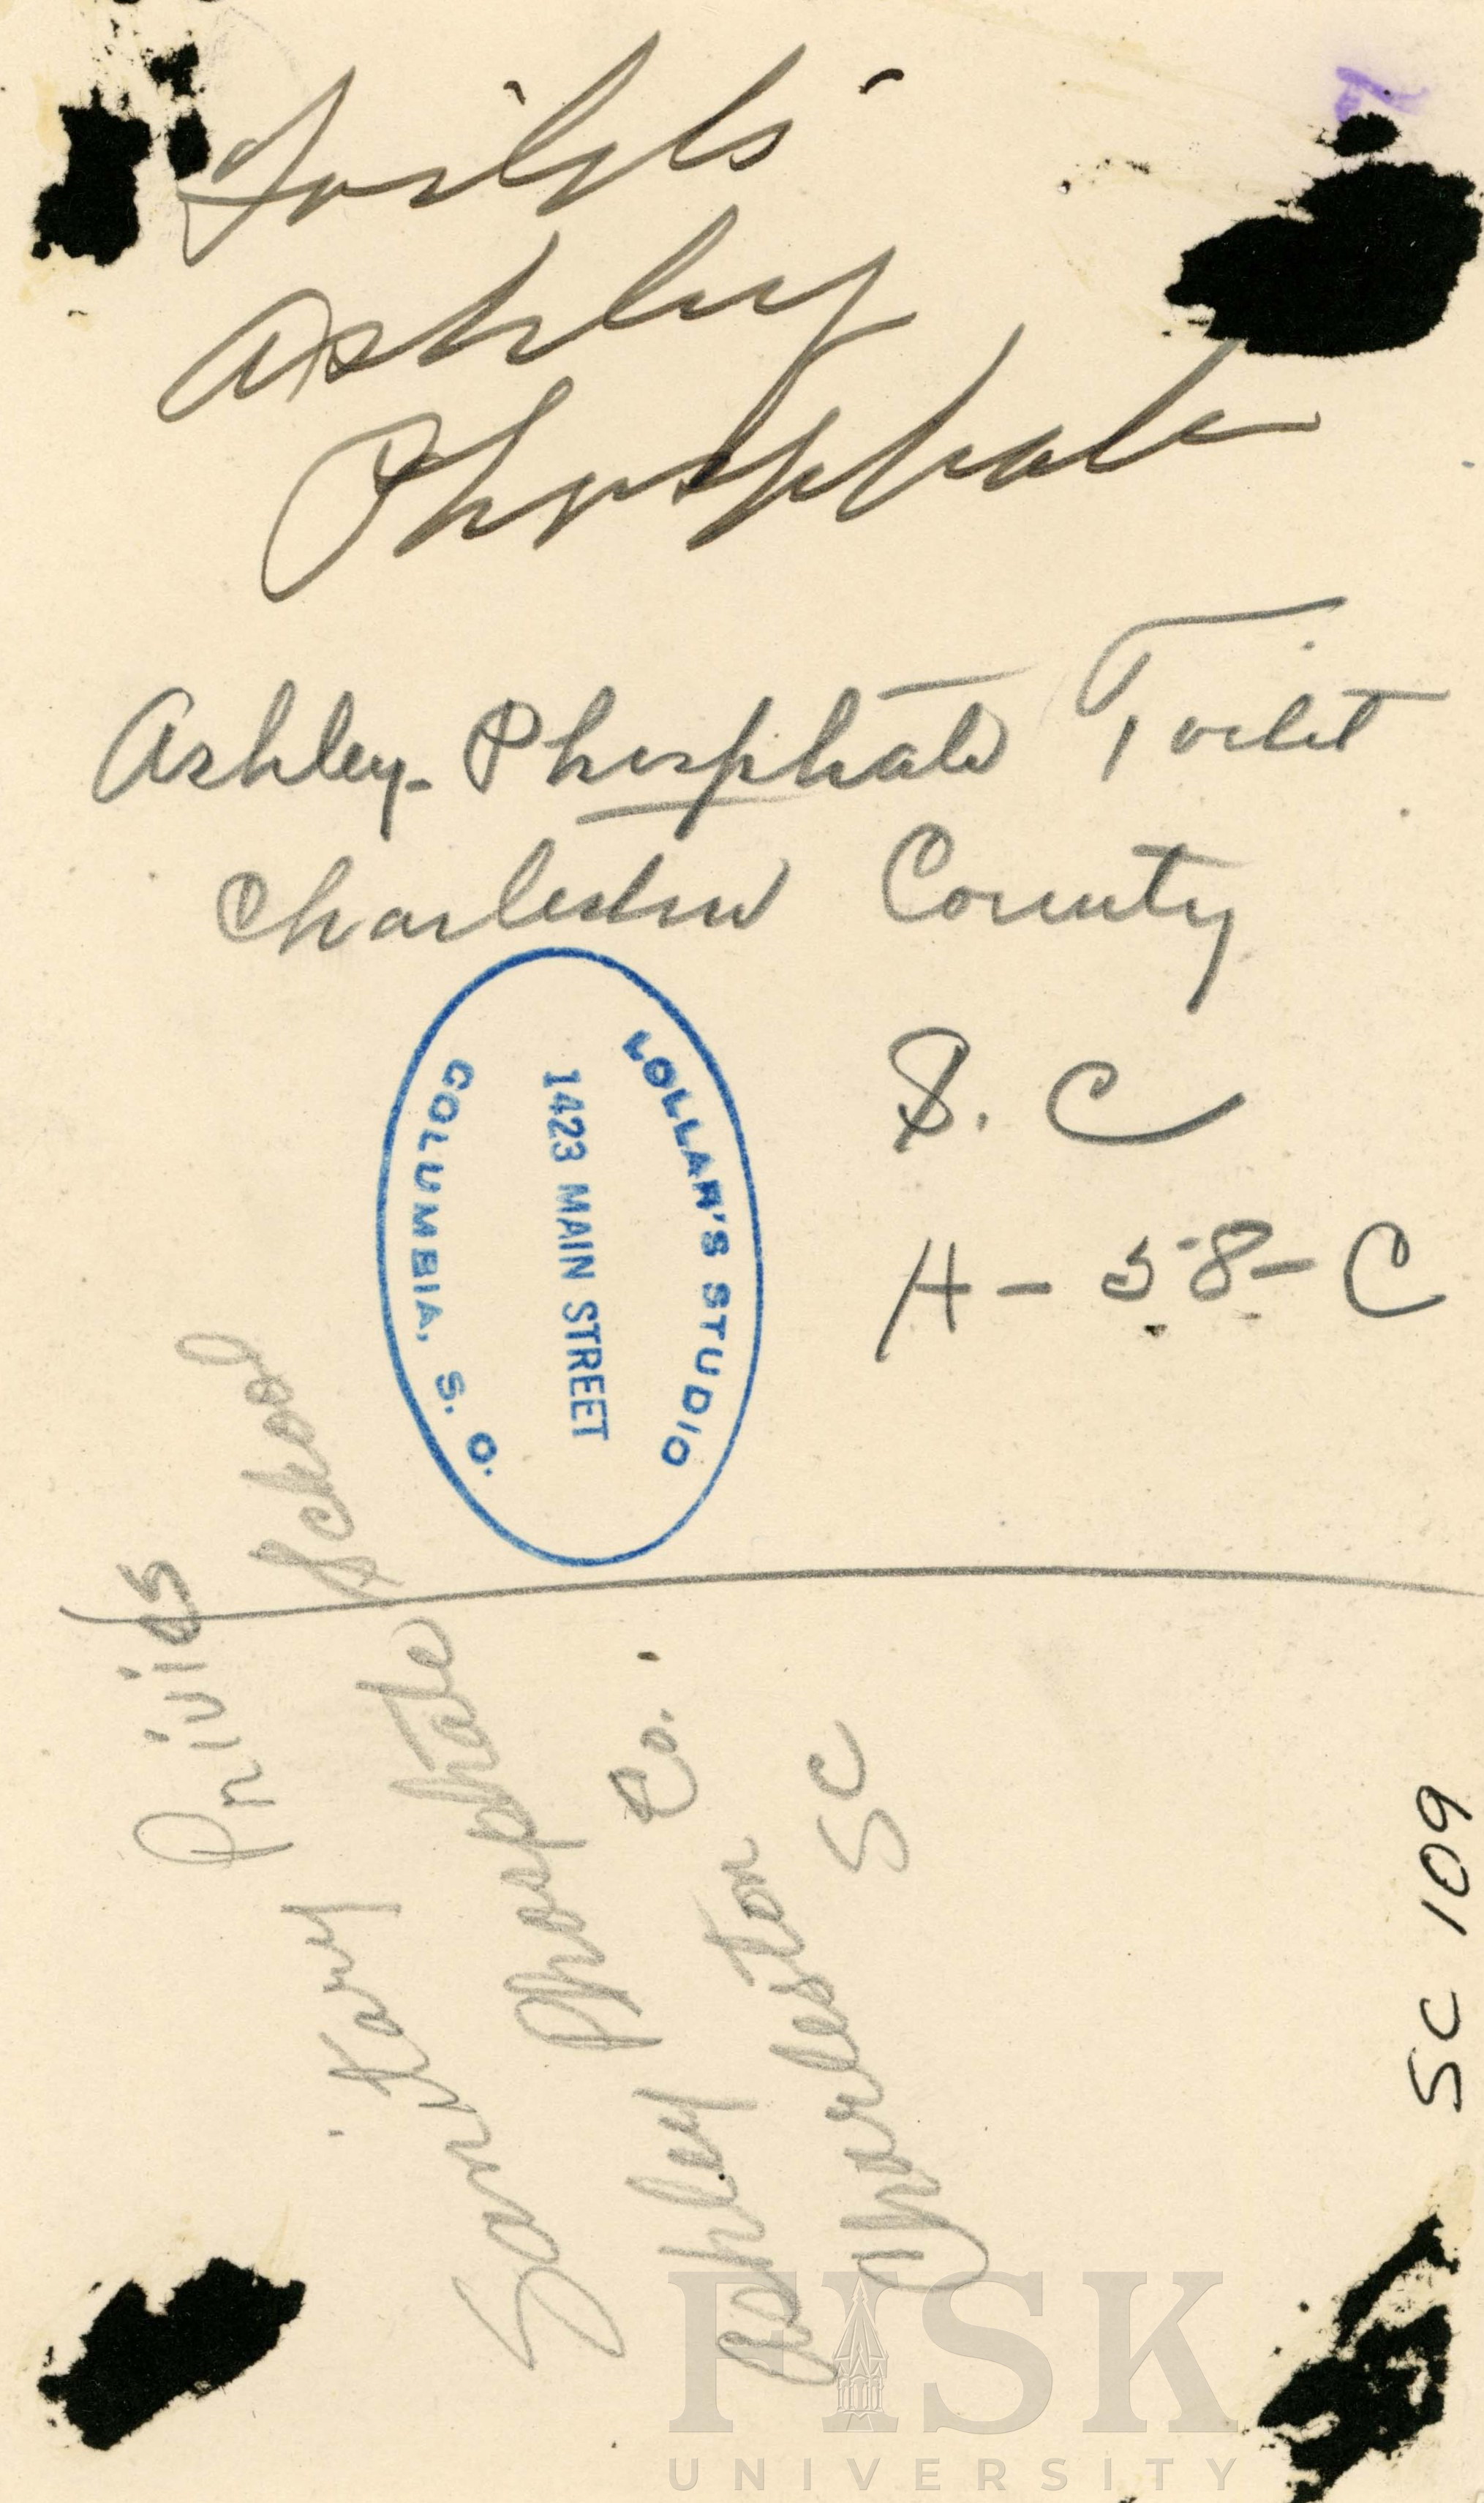 Toilets
Ashley
Phosphate
Ashley-Phosphate Toilet
Charleston County
S. C
A-58-C
HOLLAR'S STUDIO
1423 MAIN STREET
COLUMBIA, S. C.
Privies
Sanitary School
Ashley Phosphate
Charleston Co.
SC
SC 109
FISK
UNIVERSITY